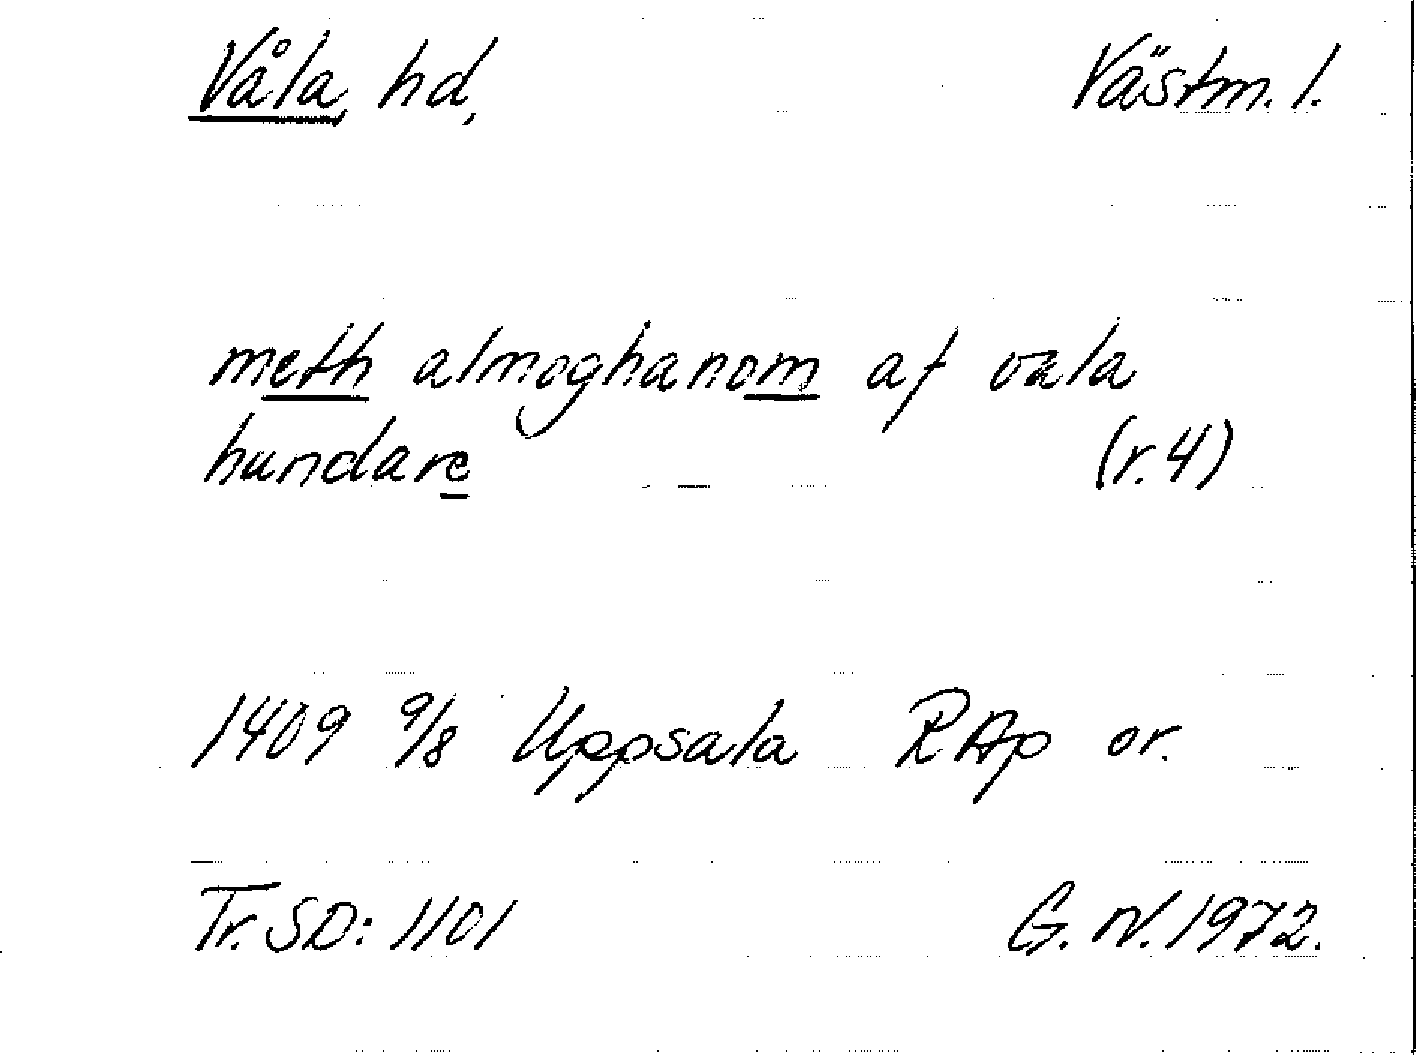 Våla, hd, Västm. l.
meth almoghanom af vala
hundare (r. 4)
1409 9/8 Uppsala RAp or.
Tr. SD: 1101 G. N. 1972.